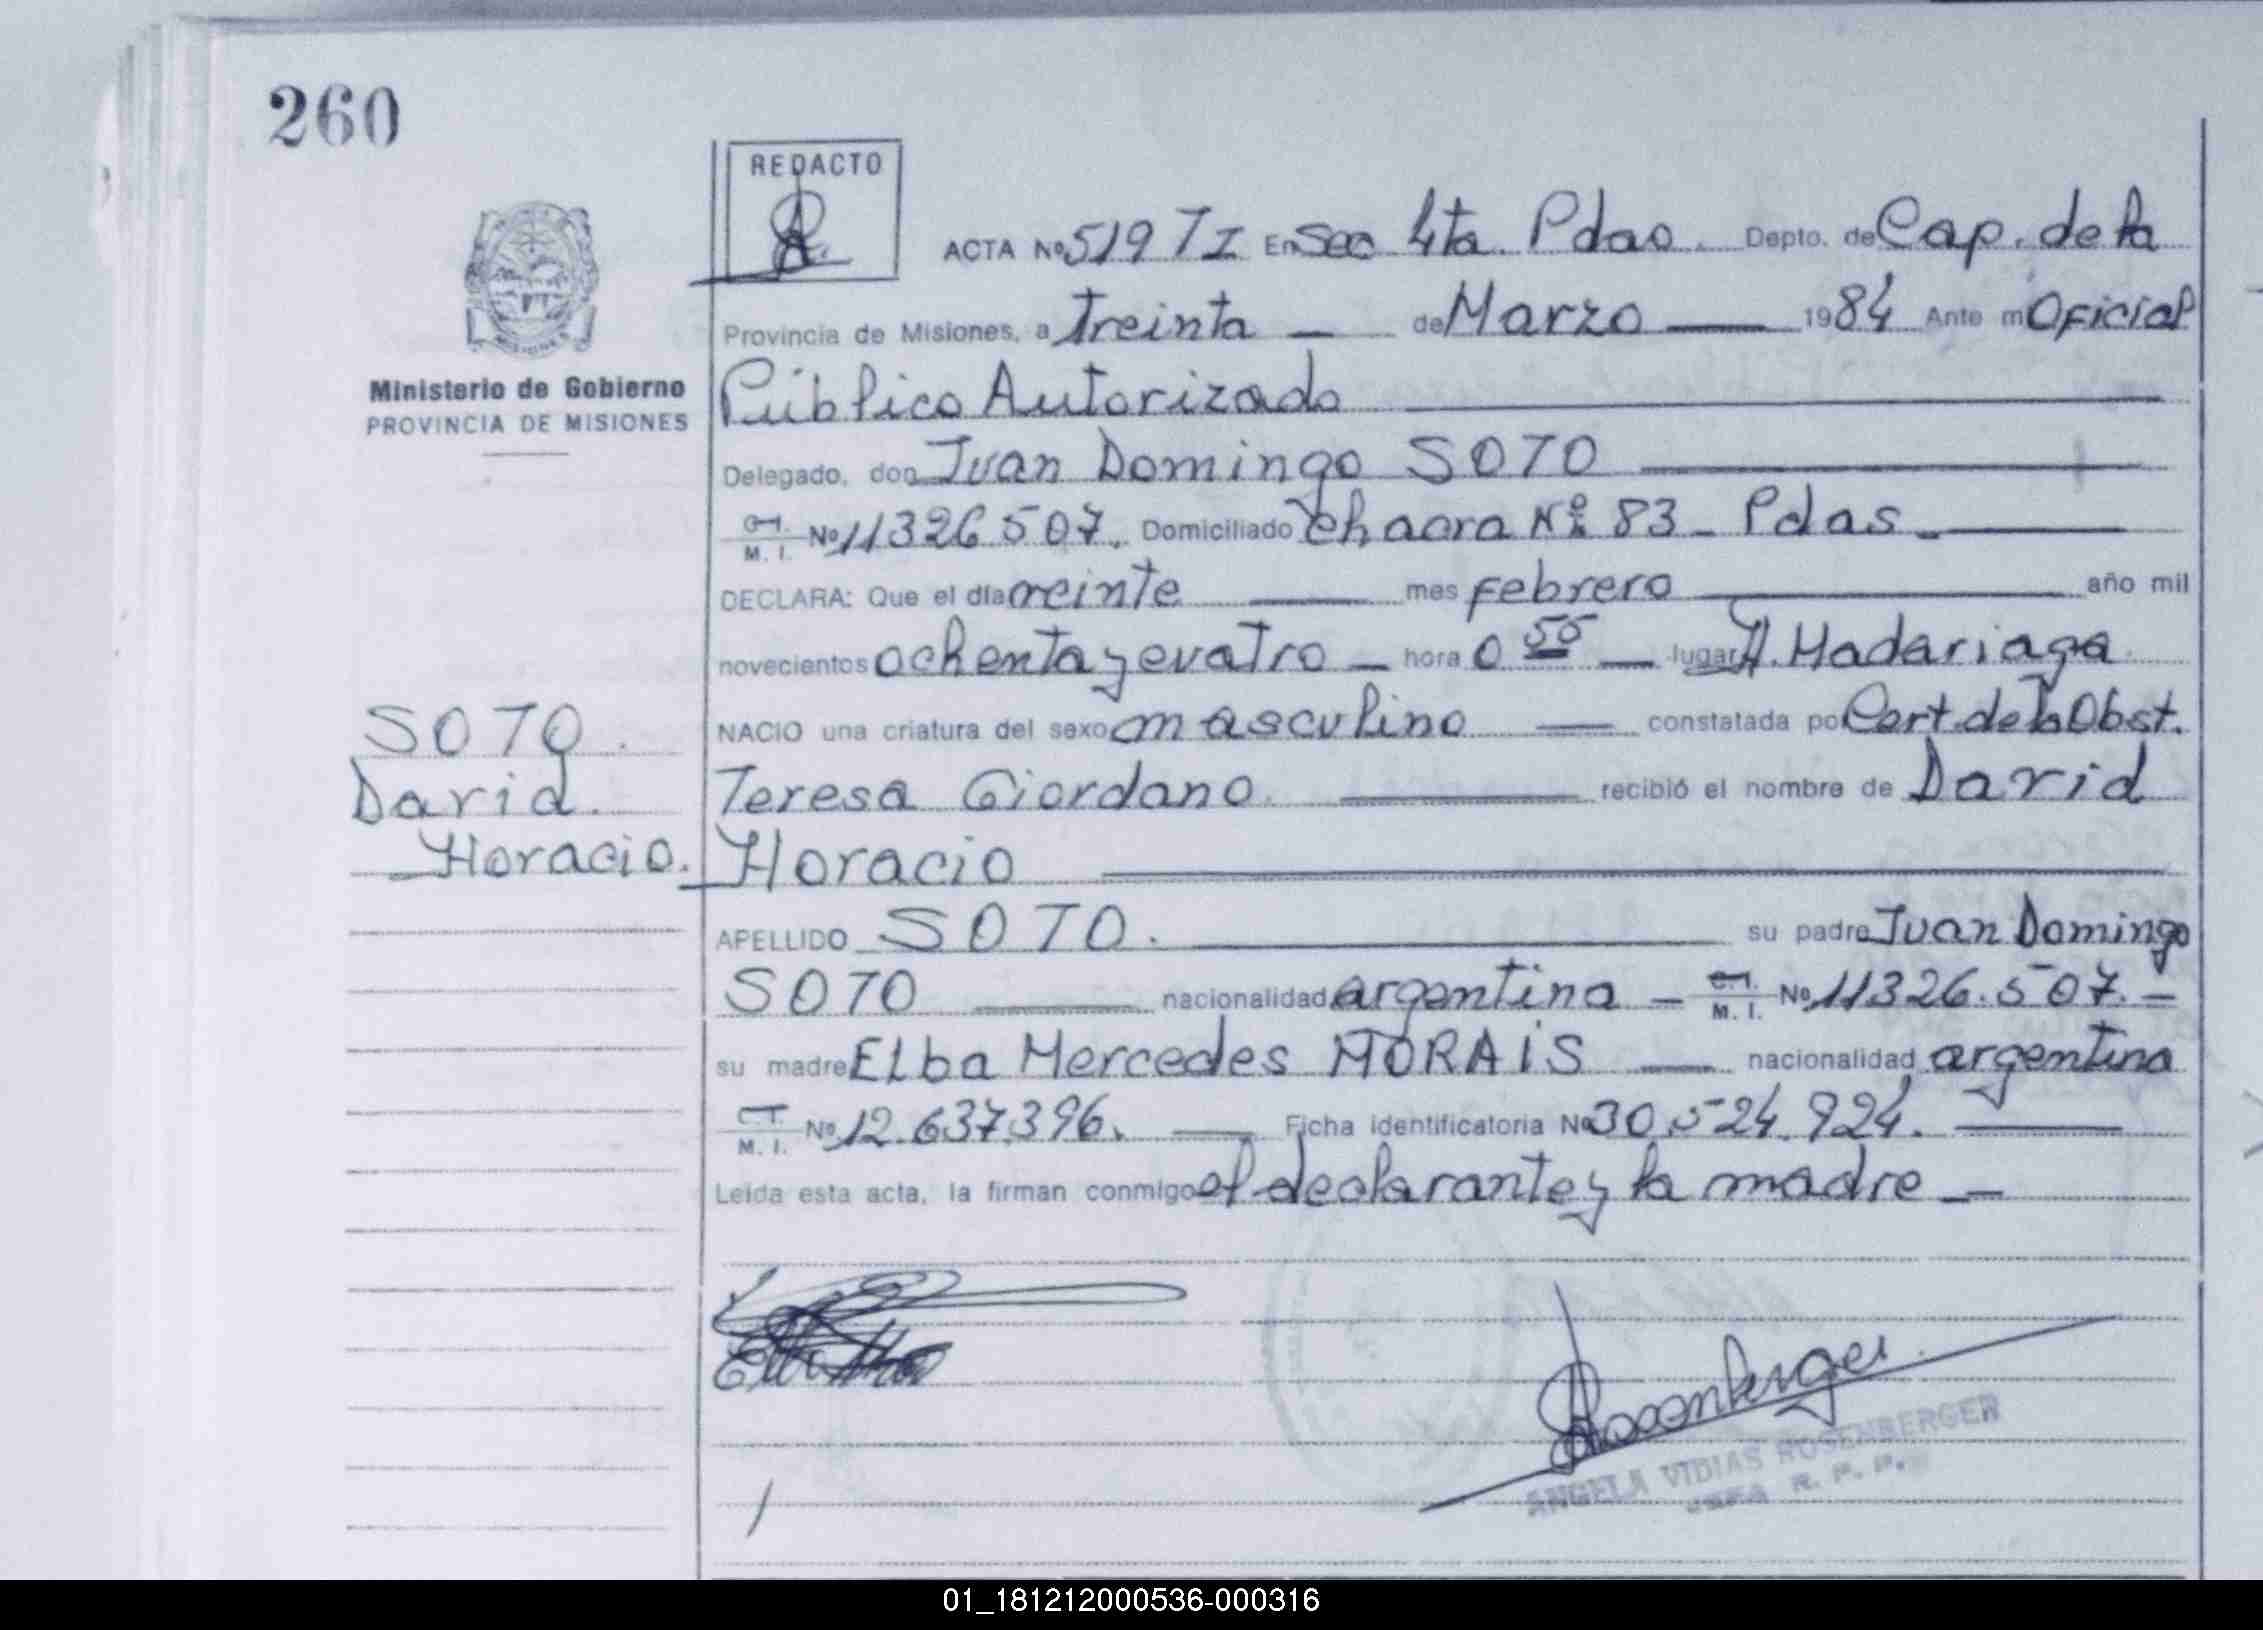 260
REDACTO
ACTA Nº 519 TI En Sec 4ta. Pdas. Depto. de Cap. de la
Provincia de Misiones, a Treinta — de Marzo — 1984 Ante mi Oficial
Público Autorizado
Ministerio de Gobierno
PROVINCIA DE MISIONES
Delegado, don Juan Domingo SOTO
C.I. M. I. Nº 11326507. Domiciliado Chacra Nº 83 - Pdas -
DECLARA: Que el día veinte — mes febrero — año mil
novecientos ochenta y cuatro — hora 0 55 — lugar H. Madariaga
NACIO una criatura del sexo masculino — constatada por Cert. de la Obst.
Teresa Giordano. — recibió el nombre de David
Horacio
SOTO.
David.
Horacio.
APELLIDO SOTO. — su padre Juan Domingo
SOTO — nacionalidad argentina — C.I. M. I. Nº 11326.507. —
su madre Elba Mercedes MORAIS — nacionalidad argentina
C.I. M. I. Nº 12.637.396. — Ficha identificatoria Nº 30.524.924. —
Leída esta acta, la firman conmigo el declarante y la madre —
Rosenberger
ANGELA VIDIAS ROSENBERGER
JEFA R. P. P.
01_181212000536-000316